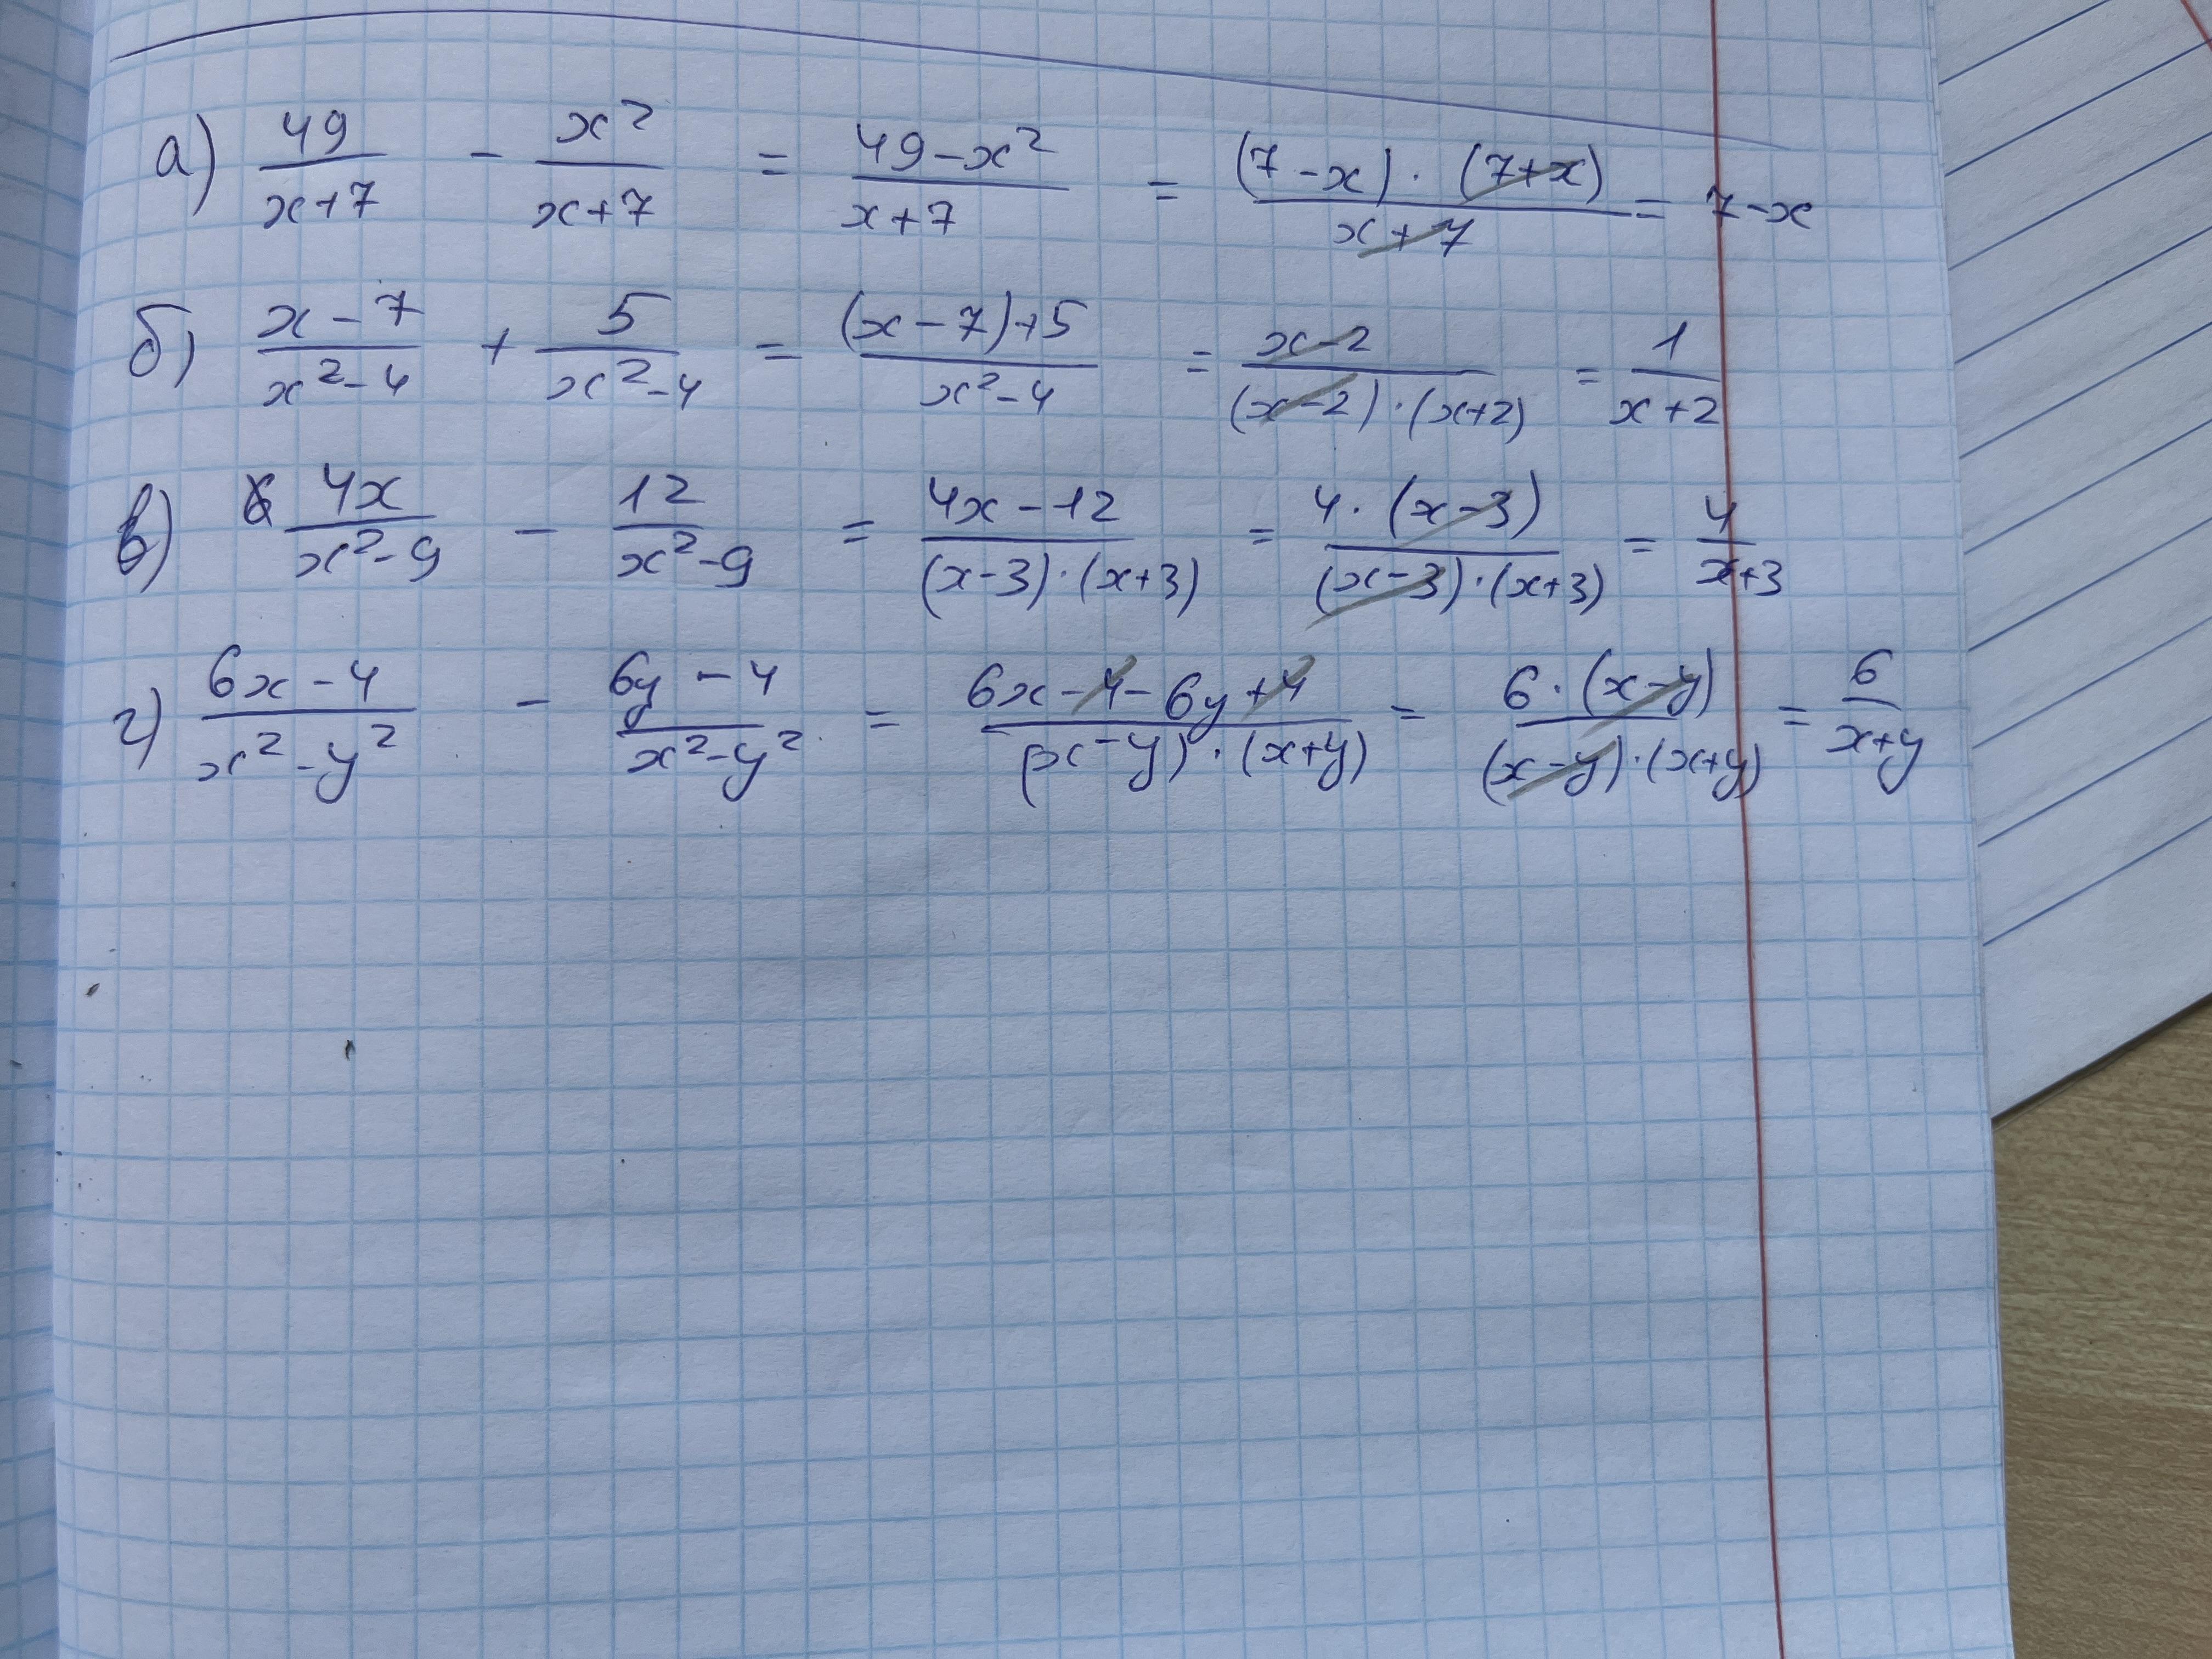 а) 49/(x+7) - x²/(x+7) = (49-x²)/(x+7) = ((7-x)·(7+x))/(x+7) = 7-x
б) (x-7)/(x²-4) + 5/(x²-4) = ((x-7)+5)/(x²-4) = (x-2)/((x-2)·(x+2)) = 1/(x+2)
в) 4x/(x²-9) - 12/(x²-9) = (4x-12)/((x-3)·(x+3)) = (4·(x-3))/((x-3)·(x+3)) = 4/(x+3)
г) (6x-4)/(x²-y²) - (6y-4)/(x²-y²) = (6x-4-6y+4)/((x-y)·(x+y)) = (6·(x-y))/((x-y)·(x+y)) = 6/(x+y)